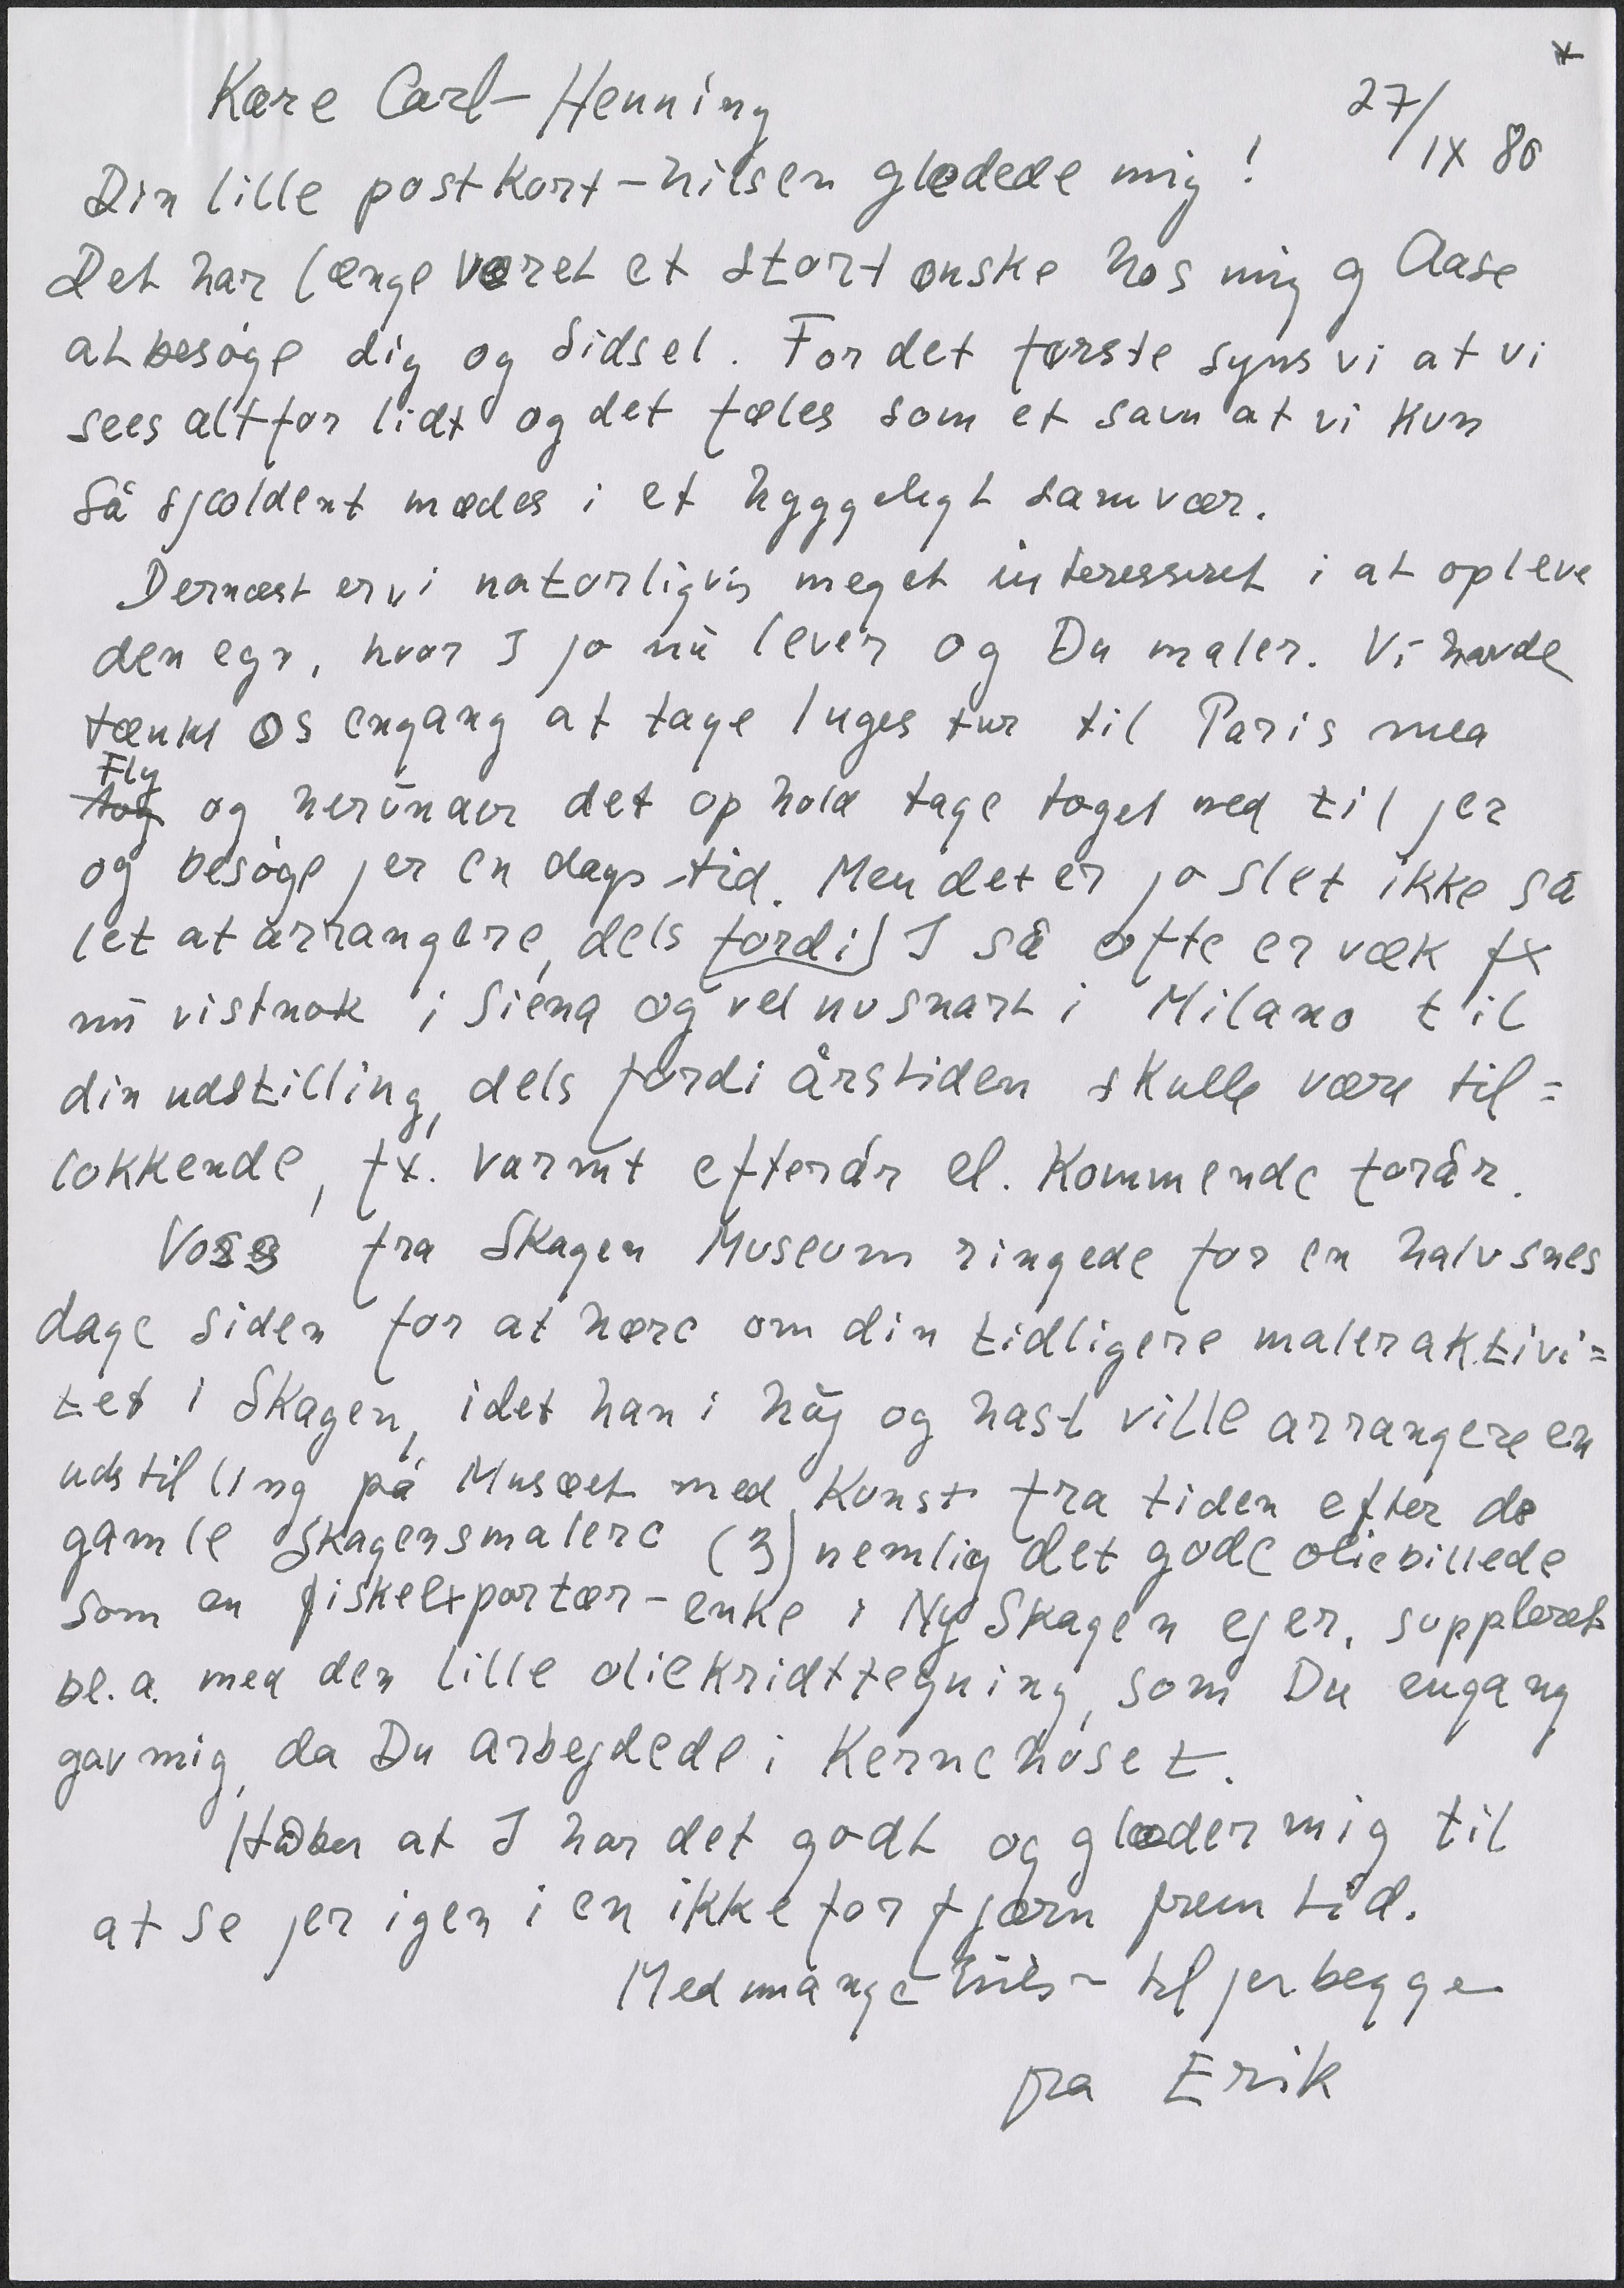 Kære Carl-Henning
27/IX 86
Din lille postkort-hilsen glædede mig!
Det har længe været et stort ønske hos mig og Aase
at besøge dig og Sidsel. For det første syns vi at vi
sees alt for lidt og det føles som et savn at vi kun
så sjældent mødes i et hyggeligt samvær.
Dernæst er vi naturligvis meget interesseret i at opleve
den egn, hvor I jo nu lever og Du maler. Vi havde
tænkt os engang at tage 1 uges tur til Paris med
Fly
tog og herunder det ophold tage toget ned til jer
og besøge jer en dags-tid. Men det er jo slet ikke så
let at arrangere, dels fordi I så ofte er væk fx
nu vistnok i Siena og vel nu snart i Milano til
din udstilling, dels fordi årstiden skulle være til=
lokkende, fx. varmt efterår el. kommende forår.
Voss fra Skagen Museum ringede for en halv snes
dage siden for at høre om din tidligere maleraktivi=
tet i Skagen, idet han i hój og hast ville arrangere en
udstilling på Musæet med Kunst fra tiden efter de
gamle Skagensmalere (3) nemlig det gode oliebillede
som en fiskeexportør-enke i Ny Skagen ejer, suppleret
bl.a. med den lille oliekridttegning, som Du engang
gav mig, da Du arbejdede i Kernehuset.
Håber at I har det godt og glæder mig til
at se jer igen i en ikke for fjærn fremtid.
Med mange hils- til jer begge
fra Erik